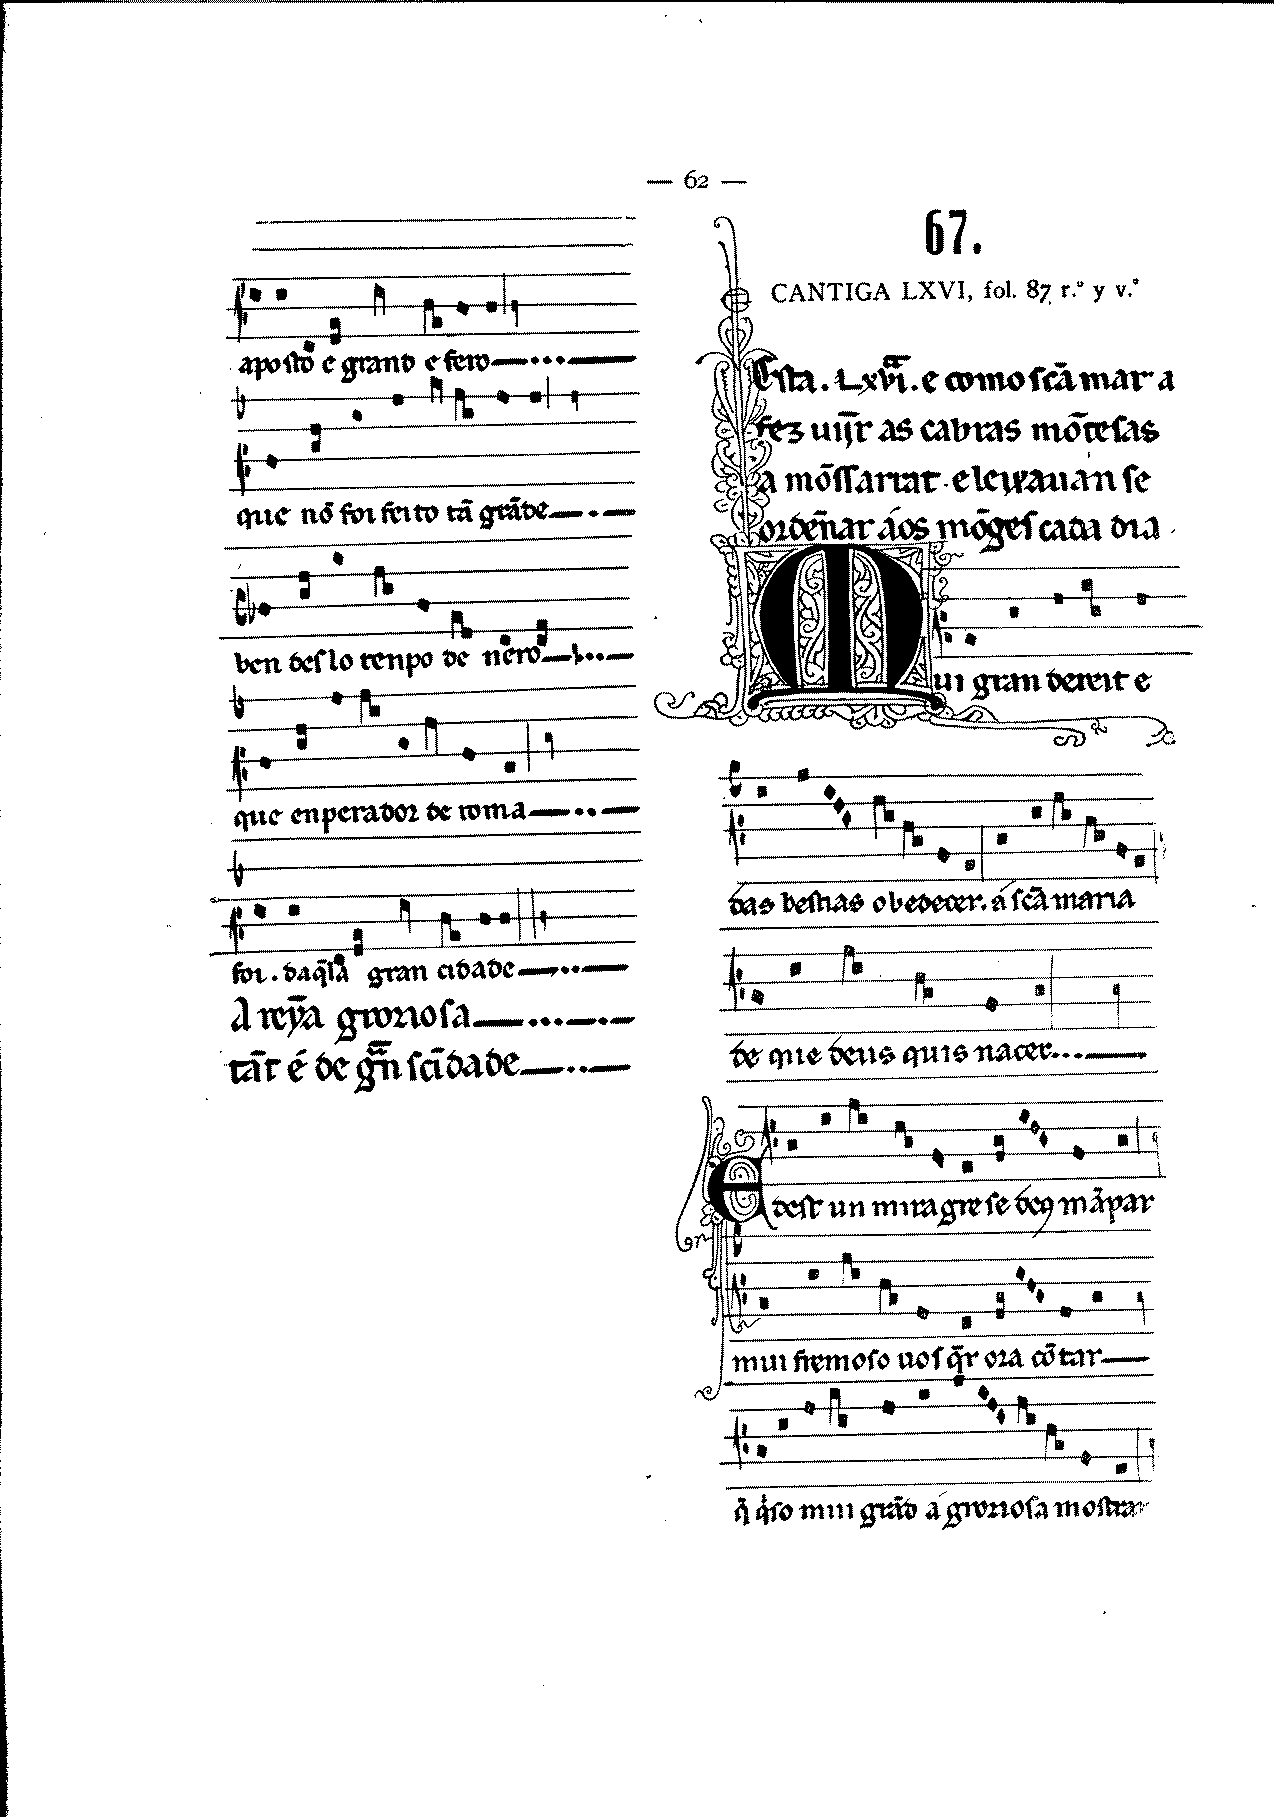 — 62 —
aposto e grand e fero
que nō foi feito tā grāde
ben des lo tenpo de nero
que enperador de roma
foi . daq̄la gran cidade
A reȳa groriosa
tāt é de grā sc̄idade
67.
CANTIGA LXVI, fol. 87 r.º y v.º
Esta . Lxvi.ª e como sc̄a mar a
fez uijr as cabras mōtesas
a mōssarrat . e leixauan se
ordēnar áos mōges cada dia
Mui gran dereit e
das bestias obedecer . á sc̄a maria
de que deus quis nacer
E dest un miragre se deꝯ māpar
mui fremoso uos q̄r ora cōtar
q̄ q'so mui grād a groriosa mostrar